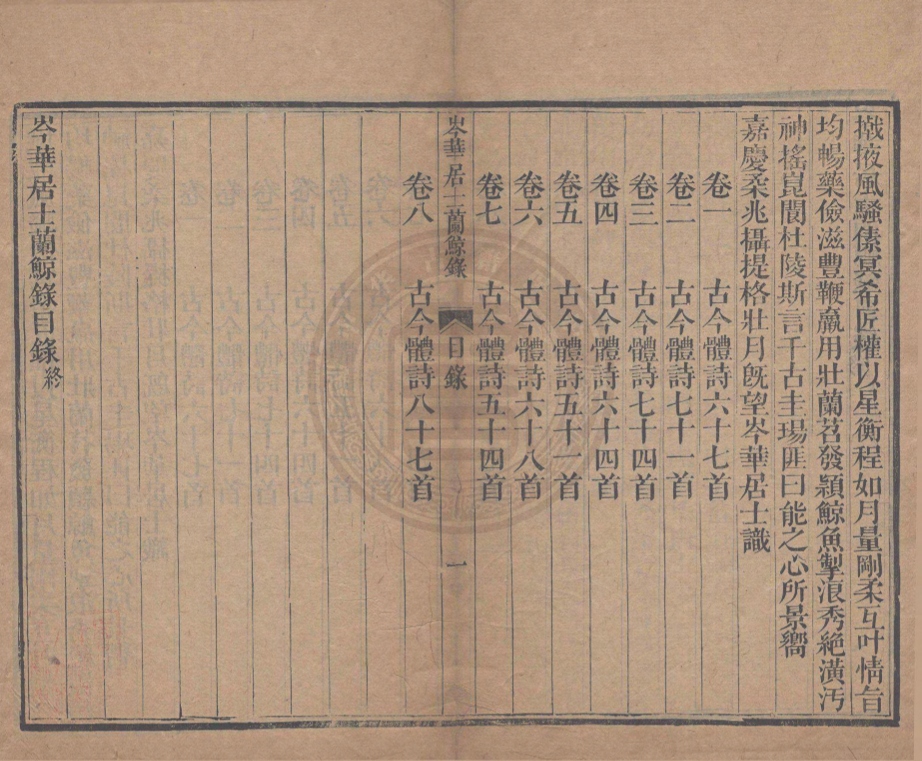 擮掖風騷傃冥希匠權以星衡程如月量剛柔互叶情旨
均暢藥儉滋豐鞭羸用壯蘭苕發潁鯨魚掣浪秀絶潢汚
神搖崑閬杜陵斯言千古圭瑒匪曰能之心所景嚮
嘉慶柔兆攝提格壯月旣望岑華居士識
卷一 古今體詩六十七首
卷二 古今體詩七十一首
卷三 古今體詩七十四首
卷四 古今體詩六十四首
卷五 古今體詩五十一首
卷六 古今體詩六十八首
卷七 古今體詩五十四首
岑華居士蘭鯨錄 目錄 一
卷八 古今體詩八十七首
岑華居士蘭鯨錄目錄終